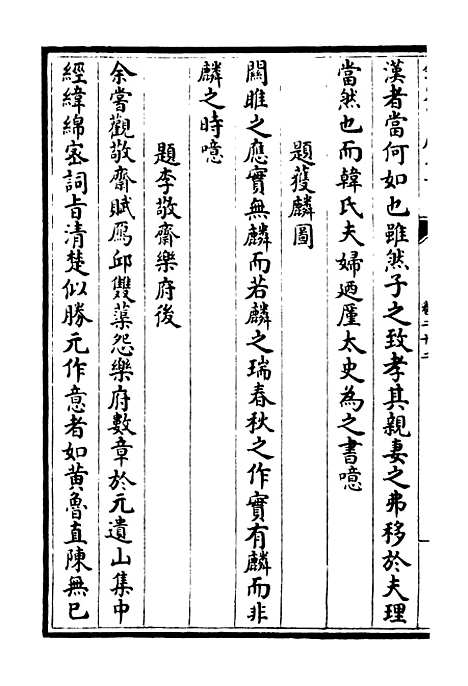 漢者當何如也雖然子之致孝其親妻之弗移於夫理
當然也而韓氏夫婦廼廑太史為之書噫
題獲麟圖
關雎之應實無麟而若麟之瑞春秋之作實有麟而非
麟之時噫
題李敬齋樂府後
余嘗觀敬齋賦鴈邱雙蕖怨樂府數章於元遺山集中
經緯綿密詞旨清楚似勝元作意者如黄魯直陳無已